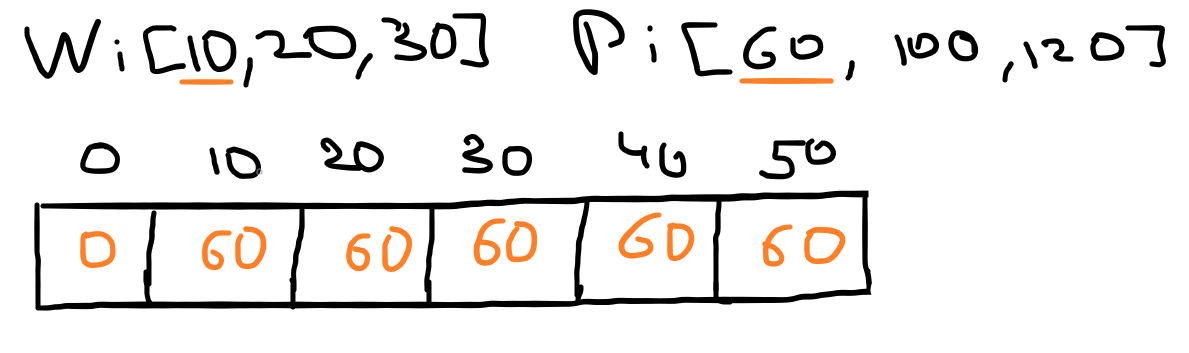 Wi[10,20,30] Pi[60, 100,120]
0 10 20 30 40 50
0 60 60 60 60 60